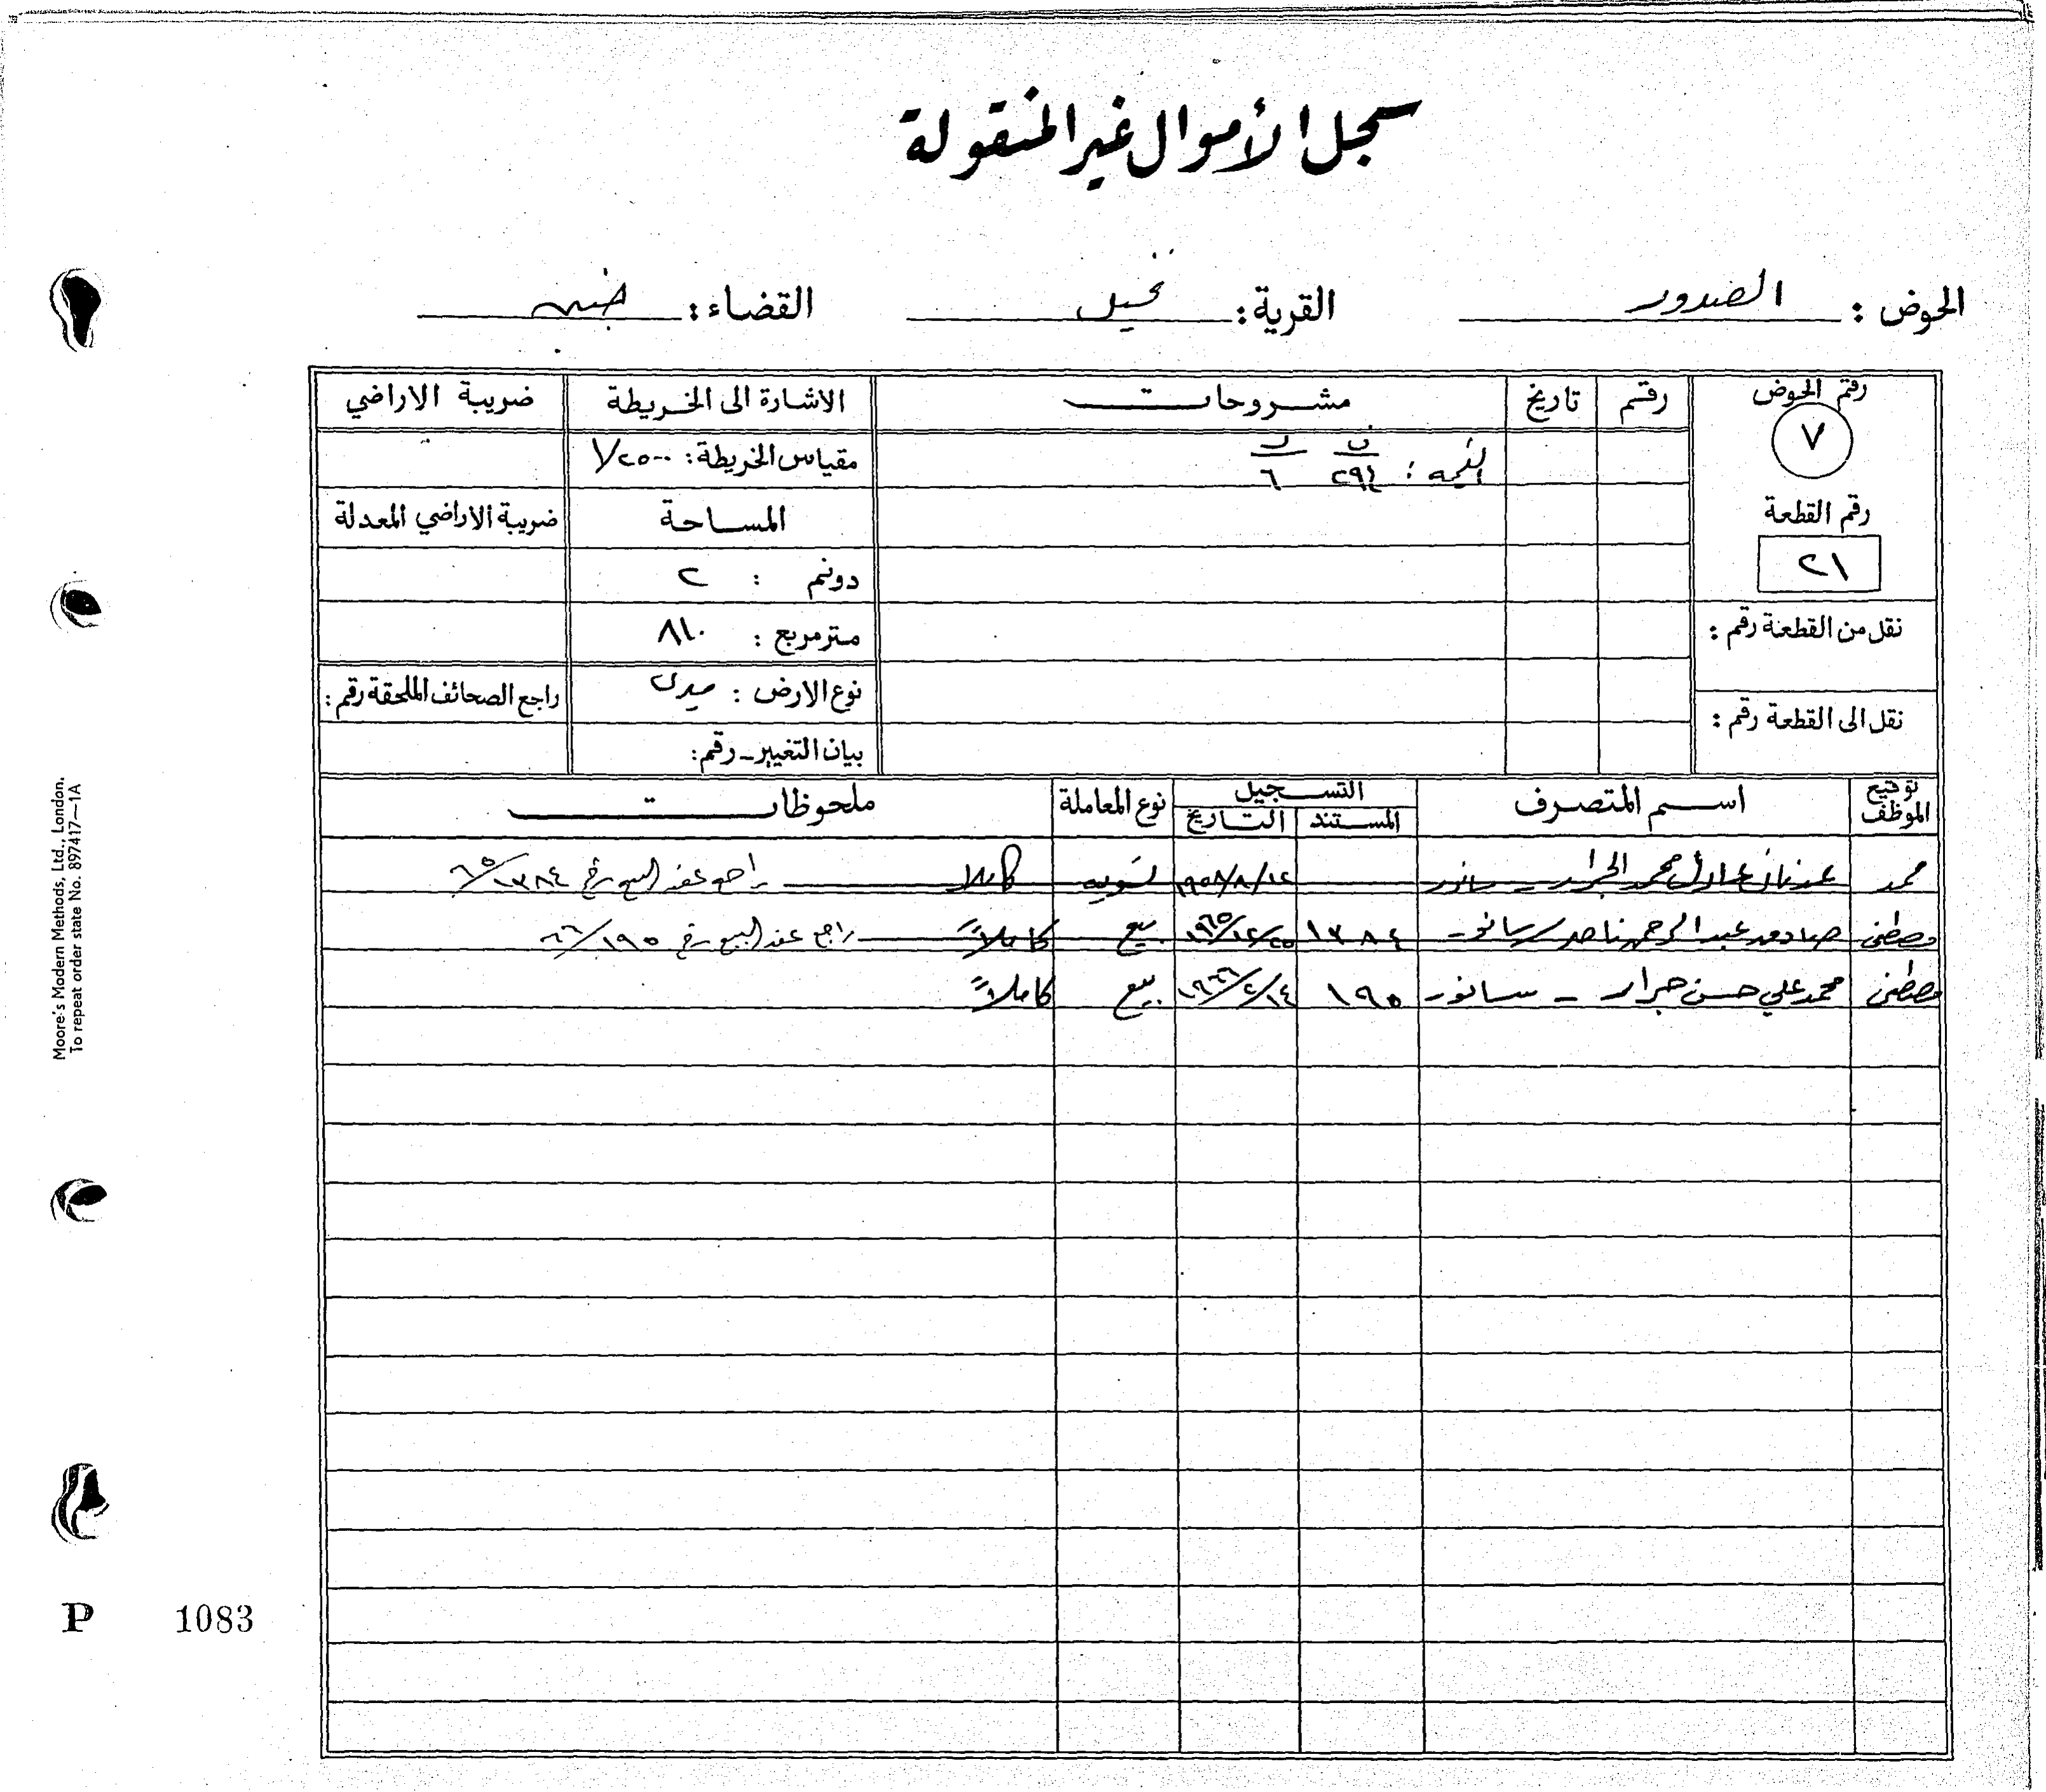 سجل الأموال غير المنقولة
الحوض : الصدور القرية : نخيل القضاء : جنين
رقم الحوض رقم تاريخ مشروحات الاشارة الى الخريطة ضريبة الاراضي
٧ القيمه : ف ٢٩٤ ل ٦ مقياس الخريطة : ١/٢٥٠٠
رقم القطعة المساحة ضريبة الاراضي المعدلة
٢١ دونم : ٢
نقل من القطعة رقم : متر مربع : ٨١٠
نوع الارض : ميري راجع الصحائف الملحقة رقم :
نقل الى القطعة رقم :
بيان التغيير - رقم :
توقيع الموظف اسم المتصرف التسجيل نوع المعاملة ملحوظات
المستند التاريخ
محمد عدنان عادل محمد الجرار - سانور ١٩٥٨/٨/١٢ تسويه كاملا راجع عقد البيع رقم ٦٥/١٣٨٤
مصطفى عبد الرحمن ناصر سانور ١٣٨٤ ٩٦٥/١٢/٢٥ بيع كاملاً راجع عقد البيع رقم ٦٦/١٩٥
مصطفى محمد علي حسن جرار - سانور ١٩٥ ١٩٦٦/٢/١٤ بيع كاملاً
Moore's Modern Methods, Ltd., London.
To repeat order state No. 897417—1A
P 1083